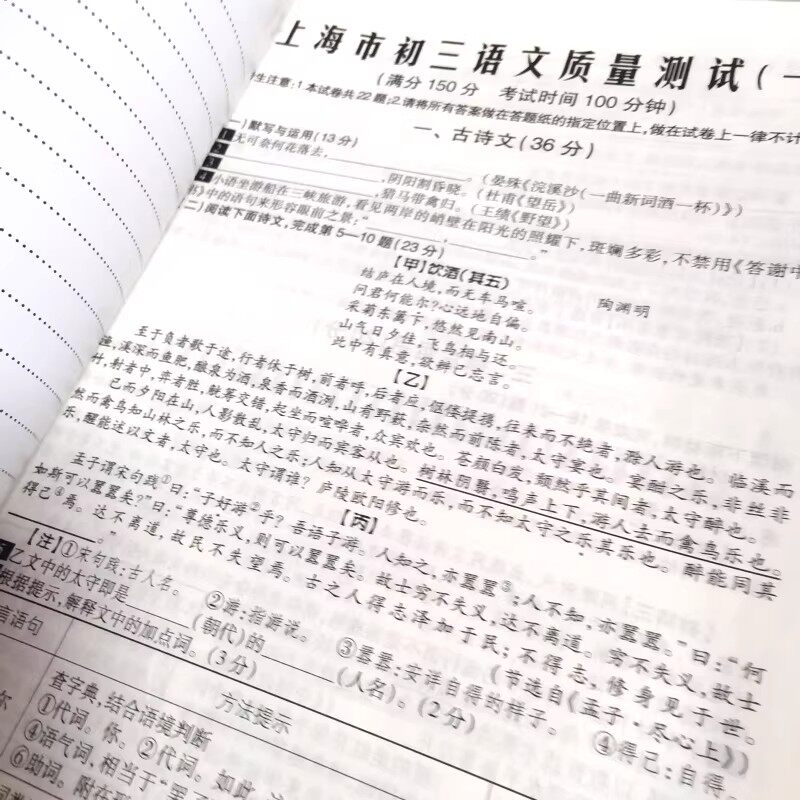 上海市初三语文质量测试(一
(满分150分 考试时间100分钟)
生注意:1.本试卷共22题;2.请将所有答案做在答题纸的指定位置上,做在试卷上一律不计
一、古诗文(36分)
一)默写与运用(13分)
1 无可奈何花落去,____________。(晏殊《浣溪沙(一曲新词酒一杯)》)
2 ____________,阴阳割昏晓。(杜甫《望岳》)
3 ____________,猎马带禽归。(王绩《野望》)
4 小语坐游船在三峡旅游,看见两岸的峭壁在阳光的照耀下,斑斓多彩,不禁用《答谢中
书》中的语句来形容眼前之景:“________,________。”
二)阅读下面诗文,完成第5—10题(23分)
【甲】饮酒(其五)
陶渊明
结庐在人境,而无车马喧。
问君何能尔?心远地自偏。
采菊东篱下,悠然见南山。
山气日夕佳,飞鸟相与还。
此中有真意,欲辨已忘言。
【乙】
至于负者歌于途,行者休于树,前者呼,后者应,伛偻提携,往来而不绝者,滁人游也。临溪而
渔,溪深而鱼肥,酿泉为酒,泉香而酒洌,山肴野蔌,杂然而前陈者,太守宴也。宴酣之乐,非丝非
竹,射者中,弈者胜,觥筹交错,起坐而喧哗者,众宾欢也。苍颜白发,颓然乎其间者,太守醉也。
已而夕阳在山,人影散乱,太守归而宾客从也。树林阴翳,鸣声上下,游人去而禽鸟乐也。
然而禽鸟知山林之乐,而不知人之乐;人知从太守游而乐,而不知太守之乐其乐也。醉能同其
乐,醒能述以文者,太守也。太守谓谁?庐陵欧阳修也。
【丙】
孟子谓宋句践①曰:“子好游②乎?吾语子游。人知之,亦嚣嚣③;人不知,亦嚣嚣。”曰:“何
如斯可以嚣嚣矣?”曰:“尊德乐义,则可以嚣嚣矣。故士穷不失义,达不离道。穷不失义,故士
得己④焉。达不离道,故民不失望焉。古之人得志泽加于民;不得志,修身见于世。
________。”
(节选自《孟子·尽心上》)
【注】①宋句践:古人名。 ②游:指游说。 ③嚣嚣:安详自得的样子。 ④得己:自得。
5 乙文中的太守即是________(朝代)的________(人名)。(2分)
根据提示,解释文中的加点词。(3分)
言语句
方法提示
尔
查字典,结合语境判断
①代词。你。②代词。如此,这
④语气词,相当于“罢了
⑥助词。附在形